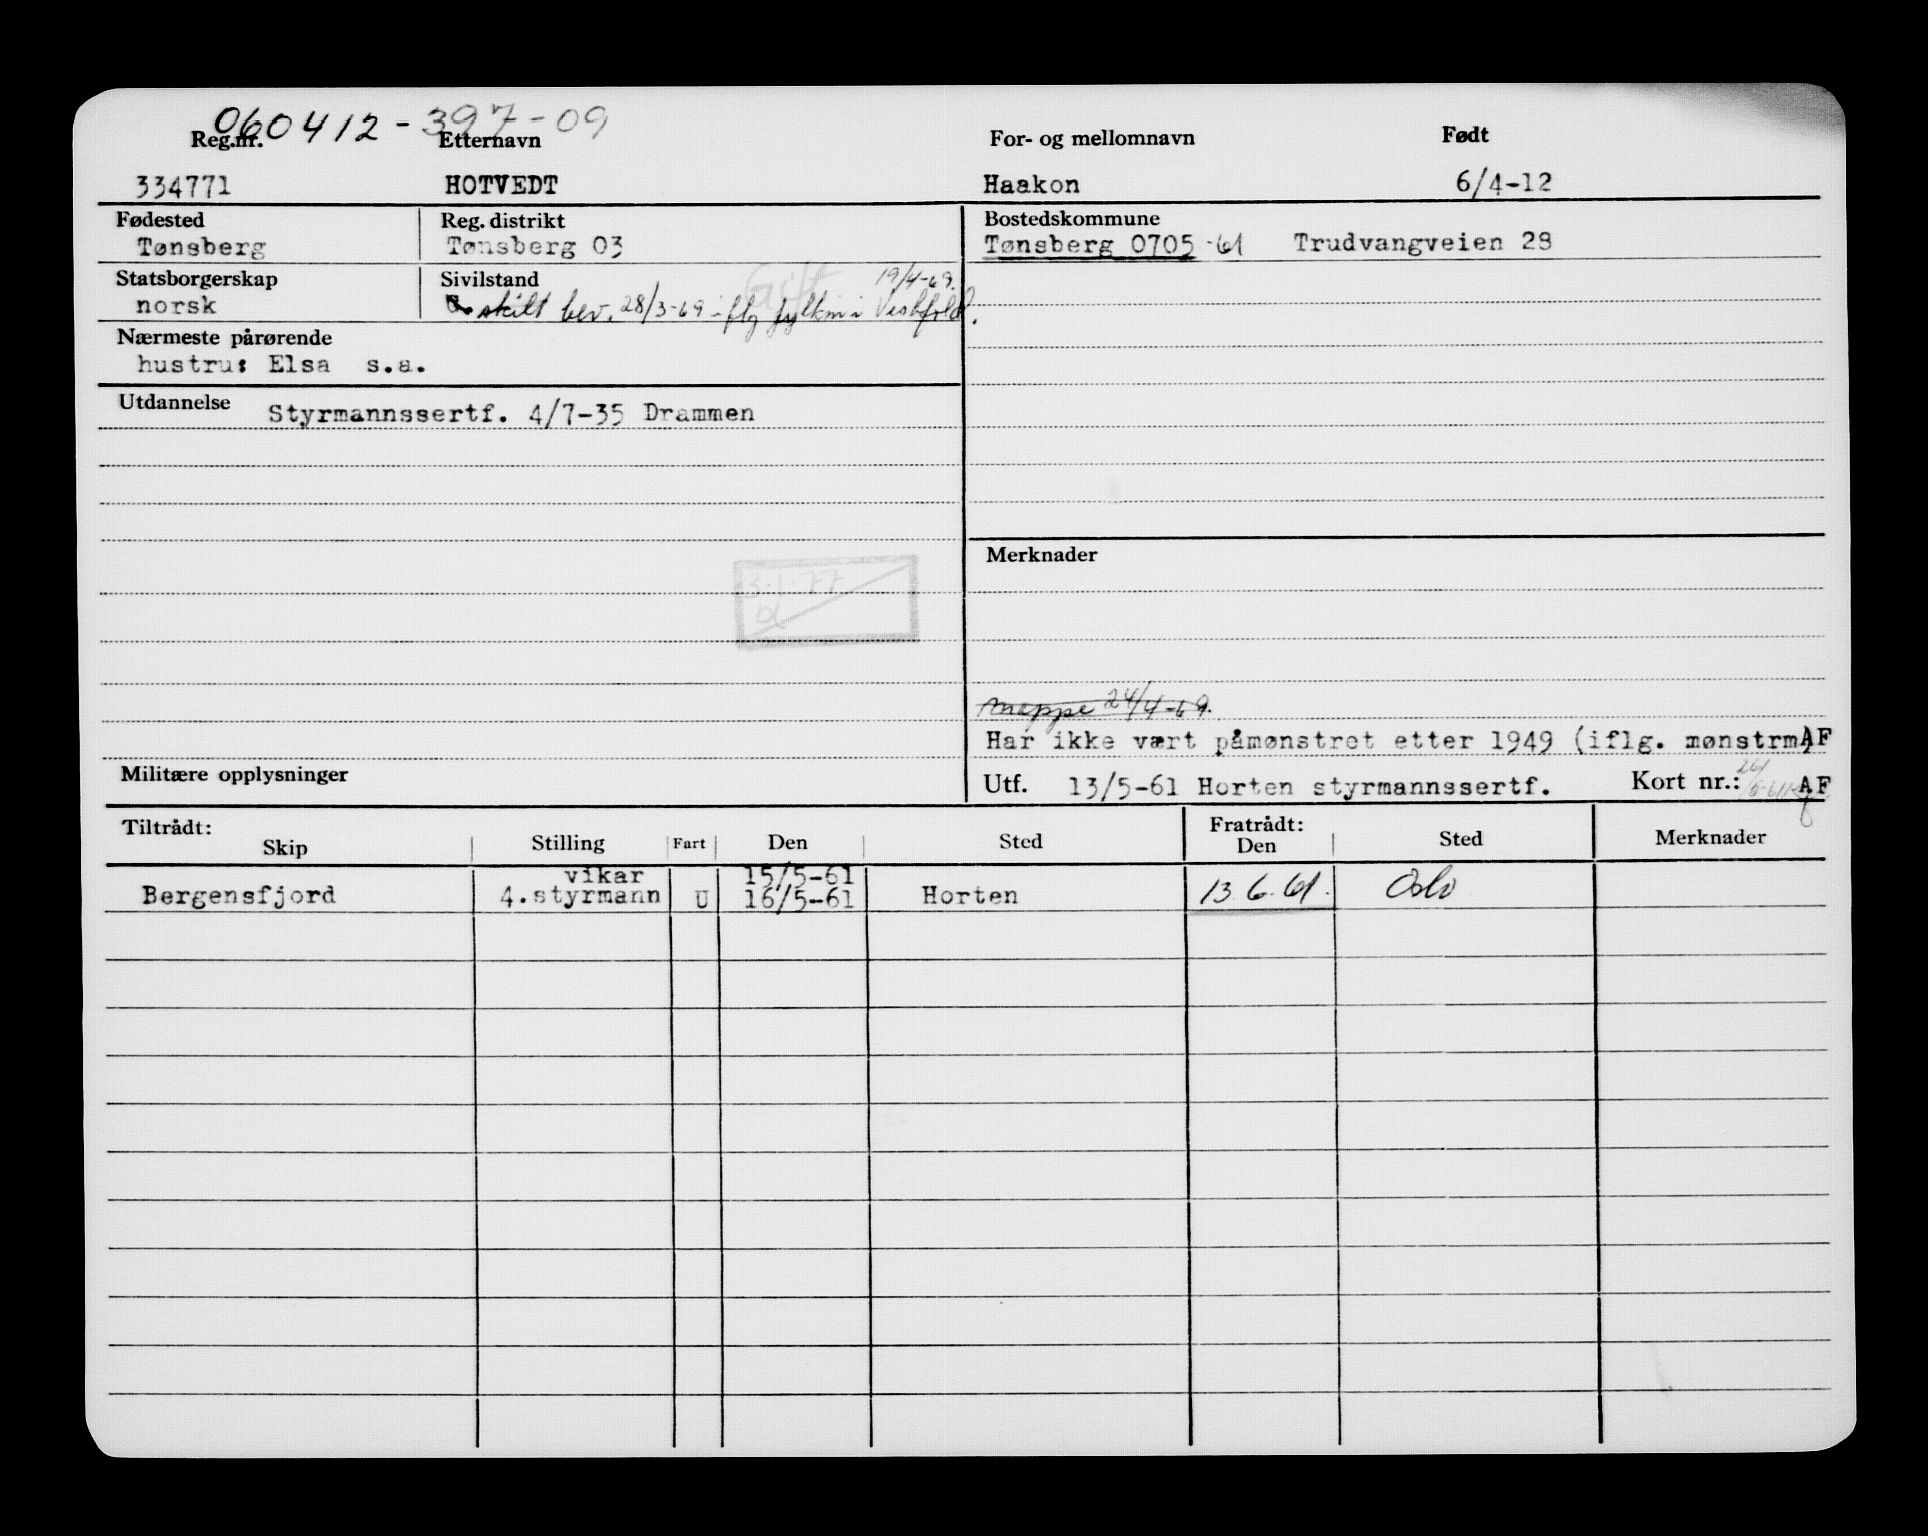 060412-397-09
Reg.nr. Etternavn For- og mellomnavn Født
334771 HOTVEDT Haakon 6/4-12
Fødested Reg. distrikt Bostedskommune
Tønsberg Tønsberg 03 Tønsberg 0705 -61 Trudvangveien 28
Statsborgerskap Sivilstand Gift 19/4-69.
norsk skilt bev. 28/3-69 iflg fylkm i Vestfold.
Nærmeste pårørende
hustru: Elsa s.a.
Utdannelse Styrmannssertf. 4/7-35 Drammen
Merknader
3.1.77
Mappe 24/4-69.
Har ikke vært påmønstret etter 1949 (iflg. mønstrm) AF
Militære opplysninger Utf. 13/5-61 Horten styrmannssertf. Kort nr.: AF
Tiltrådt: Fratrådt:
Skip Stilling Fart Den Sted Den Sted Merknader
vikar 15/5-61
Bergensfjord 4.styrmann U 16/5-61 Horten 13.6.61. Oslo